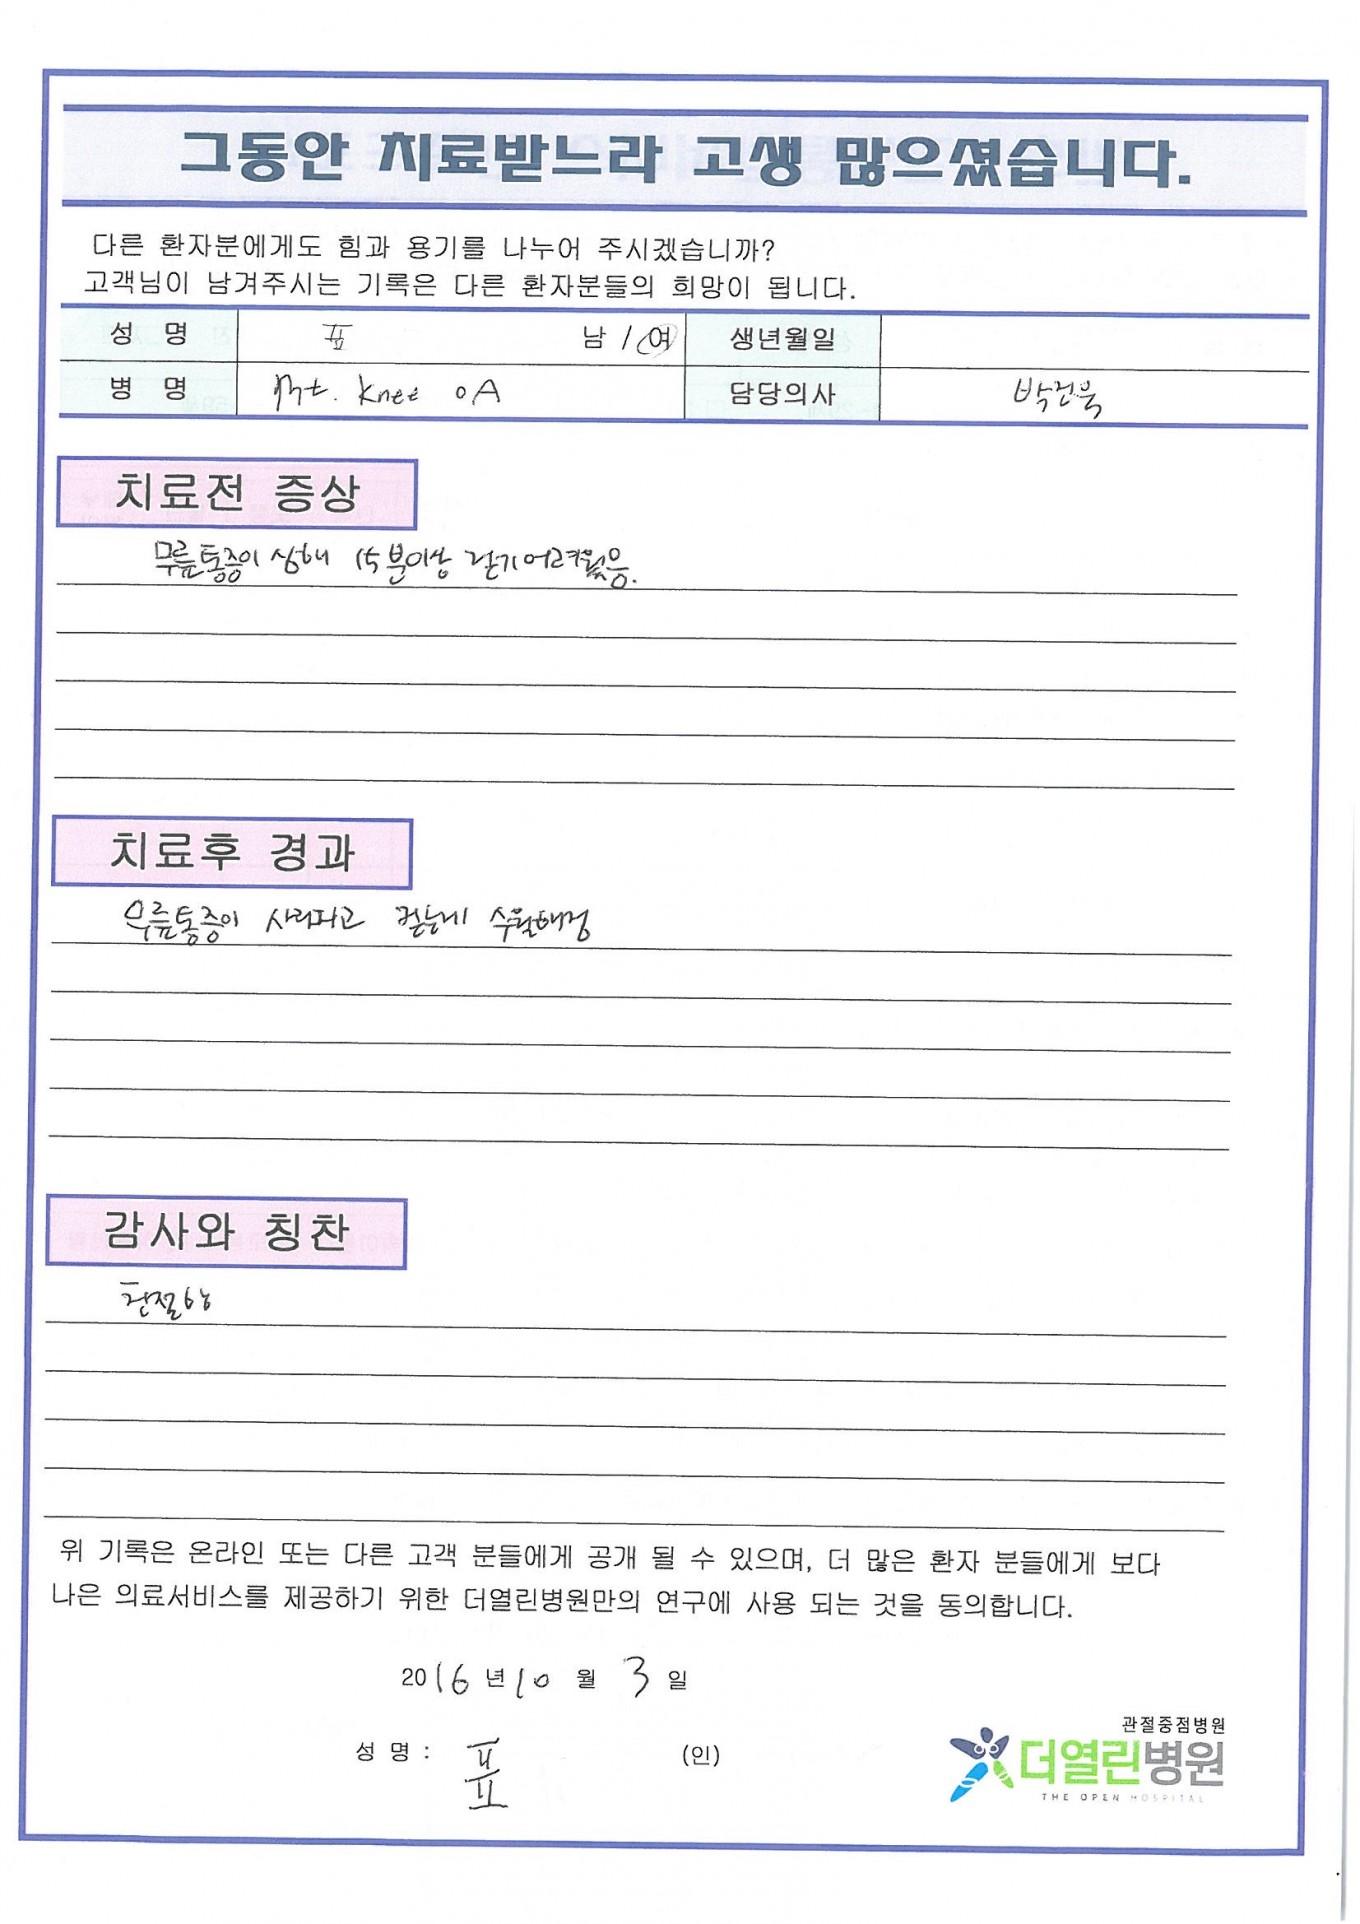 그동안 치료받느라 고생 많으셨습니다.
다른 환자분에게도 힘과 용기를 나누어 주시겠습니까?
고객님이 남겨주시는 기록은 다른 환자분들의 희망이 됩니다.
성 명 표 남 / 여 생년월일
병 명 knee OA 담당의사 박진욱
치료전 증상
무릎통증이 심해 15분이상 걷기어려웠음.
치료후 경과
무릎통증이 사라지고 걷는게 수월해짐
감사와 칭찬
친절함
위 기록은 온라인 또는 다른 고객 분들에게 공개 될 수 있으며, 더 많은 환자 분들에게 보다
나은 의료서비스를 제공하기 위한 더열린병원만의 연구에 사용 되는 것을 동의합니다.
2016 년 10 월 3 일
성 명 : 표 (인)
관절중점병원
더열린병원
THE OPEN HOSPITAL